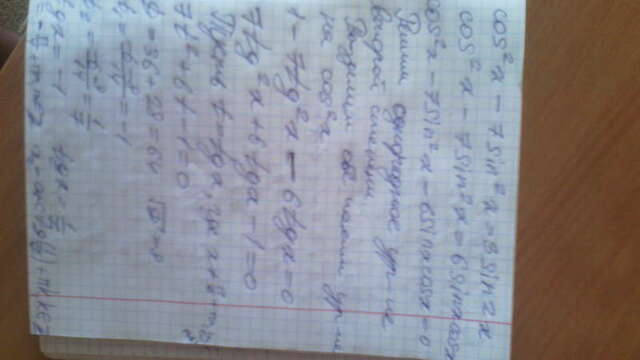 cos²x - 7sin²x = 3sin2x
cos²x - 7sin²x = 6sinxcosx
cos²x - 7sin²x - 6sinxcosx = 0
Решим однородное ур-ие
второй степени
Разделим обе части ур-ия
на cos²x
1 - 7tg²x - 6tgx = 0
7tg²x + 6tgx - 1 = 0
Пусть t = tgx, где x ≠
7t² + 6t - 1 = 0
D = 36 + 28 = 64 √D = 8
t = -6-8/14 = -1
t = -6+8/14 = 2/14 = 1/7
tgx = -1 tgx = 1/7